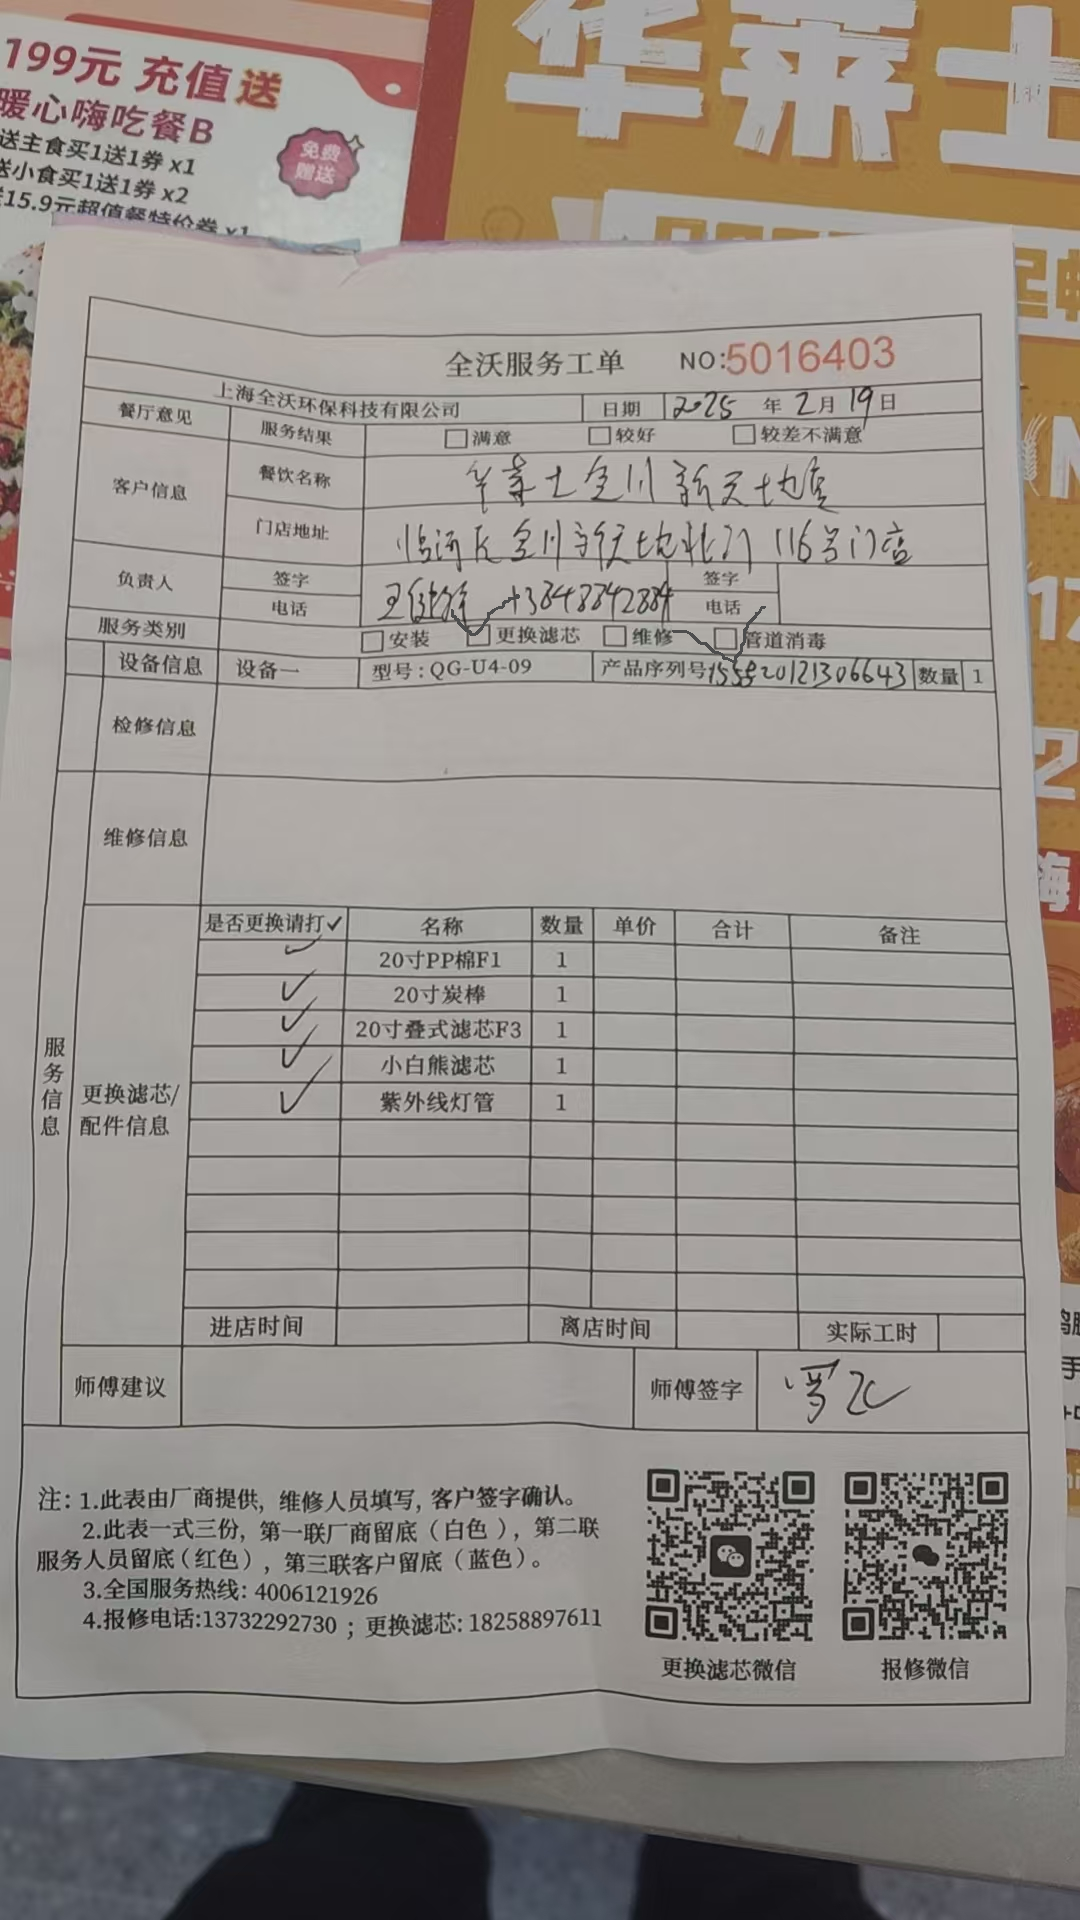 199元 充值送
暖心嗨吃餐B
送主食买1送1券 x1
送小食买1送1券 x2
送15.9元超值餐特价券 x1
免费
赠送
华莱士
全沃服务工单 NO:5016403
上海全沃环保科技有限公司 日期 2025 年 2月 19日
餐厅意见 服务结果 □满意 □较好 □较差不满意
客户信息 餐饮名称 华莱士金川新天地店
门店地址 临河区金川新天地北门 116号门店
负责人 签字 签字
电话 13848842884 电话
服务类别 □安装 ☑更换滤芯 □维修 ☑管道消毒
设备信息 设备一 型号:QG-U4-09 产品序列号 数量 1
检修信息
维修信息
服务信息
更换滤芯/
配件信息
是否更换请打✓ 名称 数量 单价 合计 备注
✓ 20寸PP棉F1 1
✓ 20寸炭棒 1
✓ 20寸叠式滤芯F3 1
✓ 小白熊滤芯 1
✓ 紫外线灯管 1
进店时间 离店时间 实际工时
师傅建议 师傅签字
注: 1.此表由厂商提供, 维修人员填写, 客户签字确认。
2.此表一式三份, 第一联厂商留底(白色), 第二联
服务人员留底(红色), 第三联客户留底(蓝色)。
3.全国服务热线: 4006121926
4.报修电话:13732292730 ; 更换滤芯: 18258897611
更换滤芯微信 报修微信